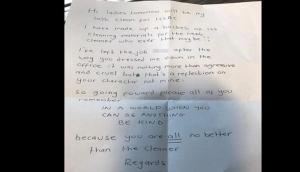 Hi ladies tomorrow will be my
last clean for HSBC
I have made up a
cleaning materials for the next
cleaner who ever that maybe
I've left the job after the
way you dressed me down in the
office it was nothing more than aggressive
and cruel but that's a reflection on
your character not mine.
So going forward please all of you
remember
IN A WORLD WHEN YOU
CAN BE ANYTHING
BE KIND
because you are all no better
than the cleaner
Regards